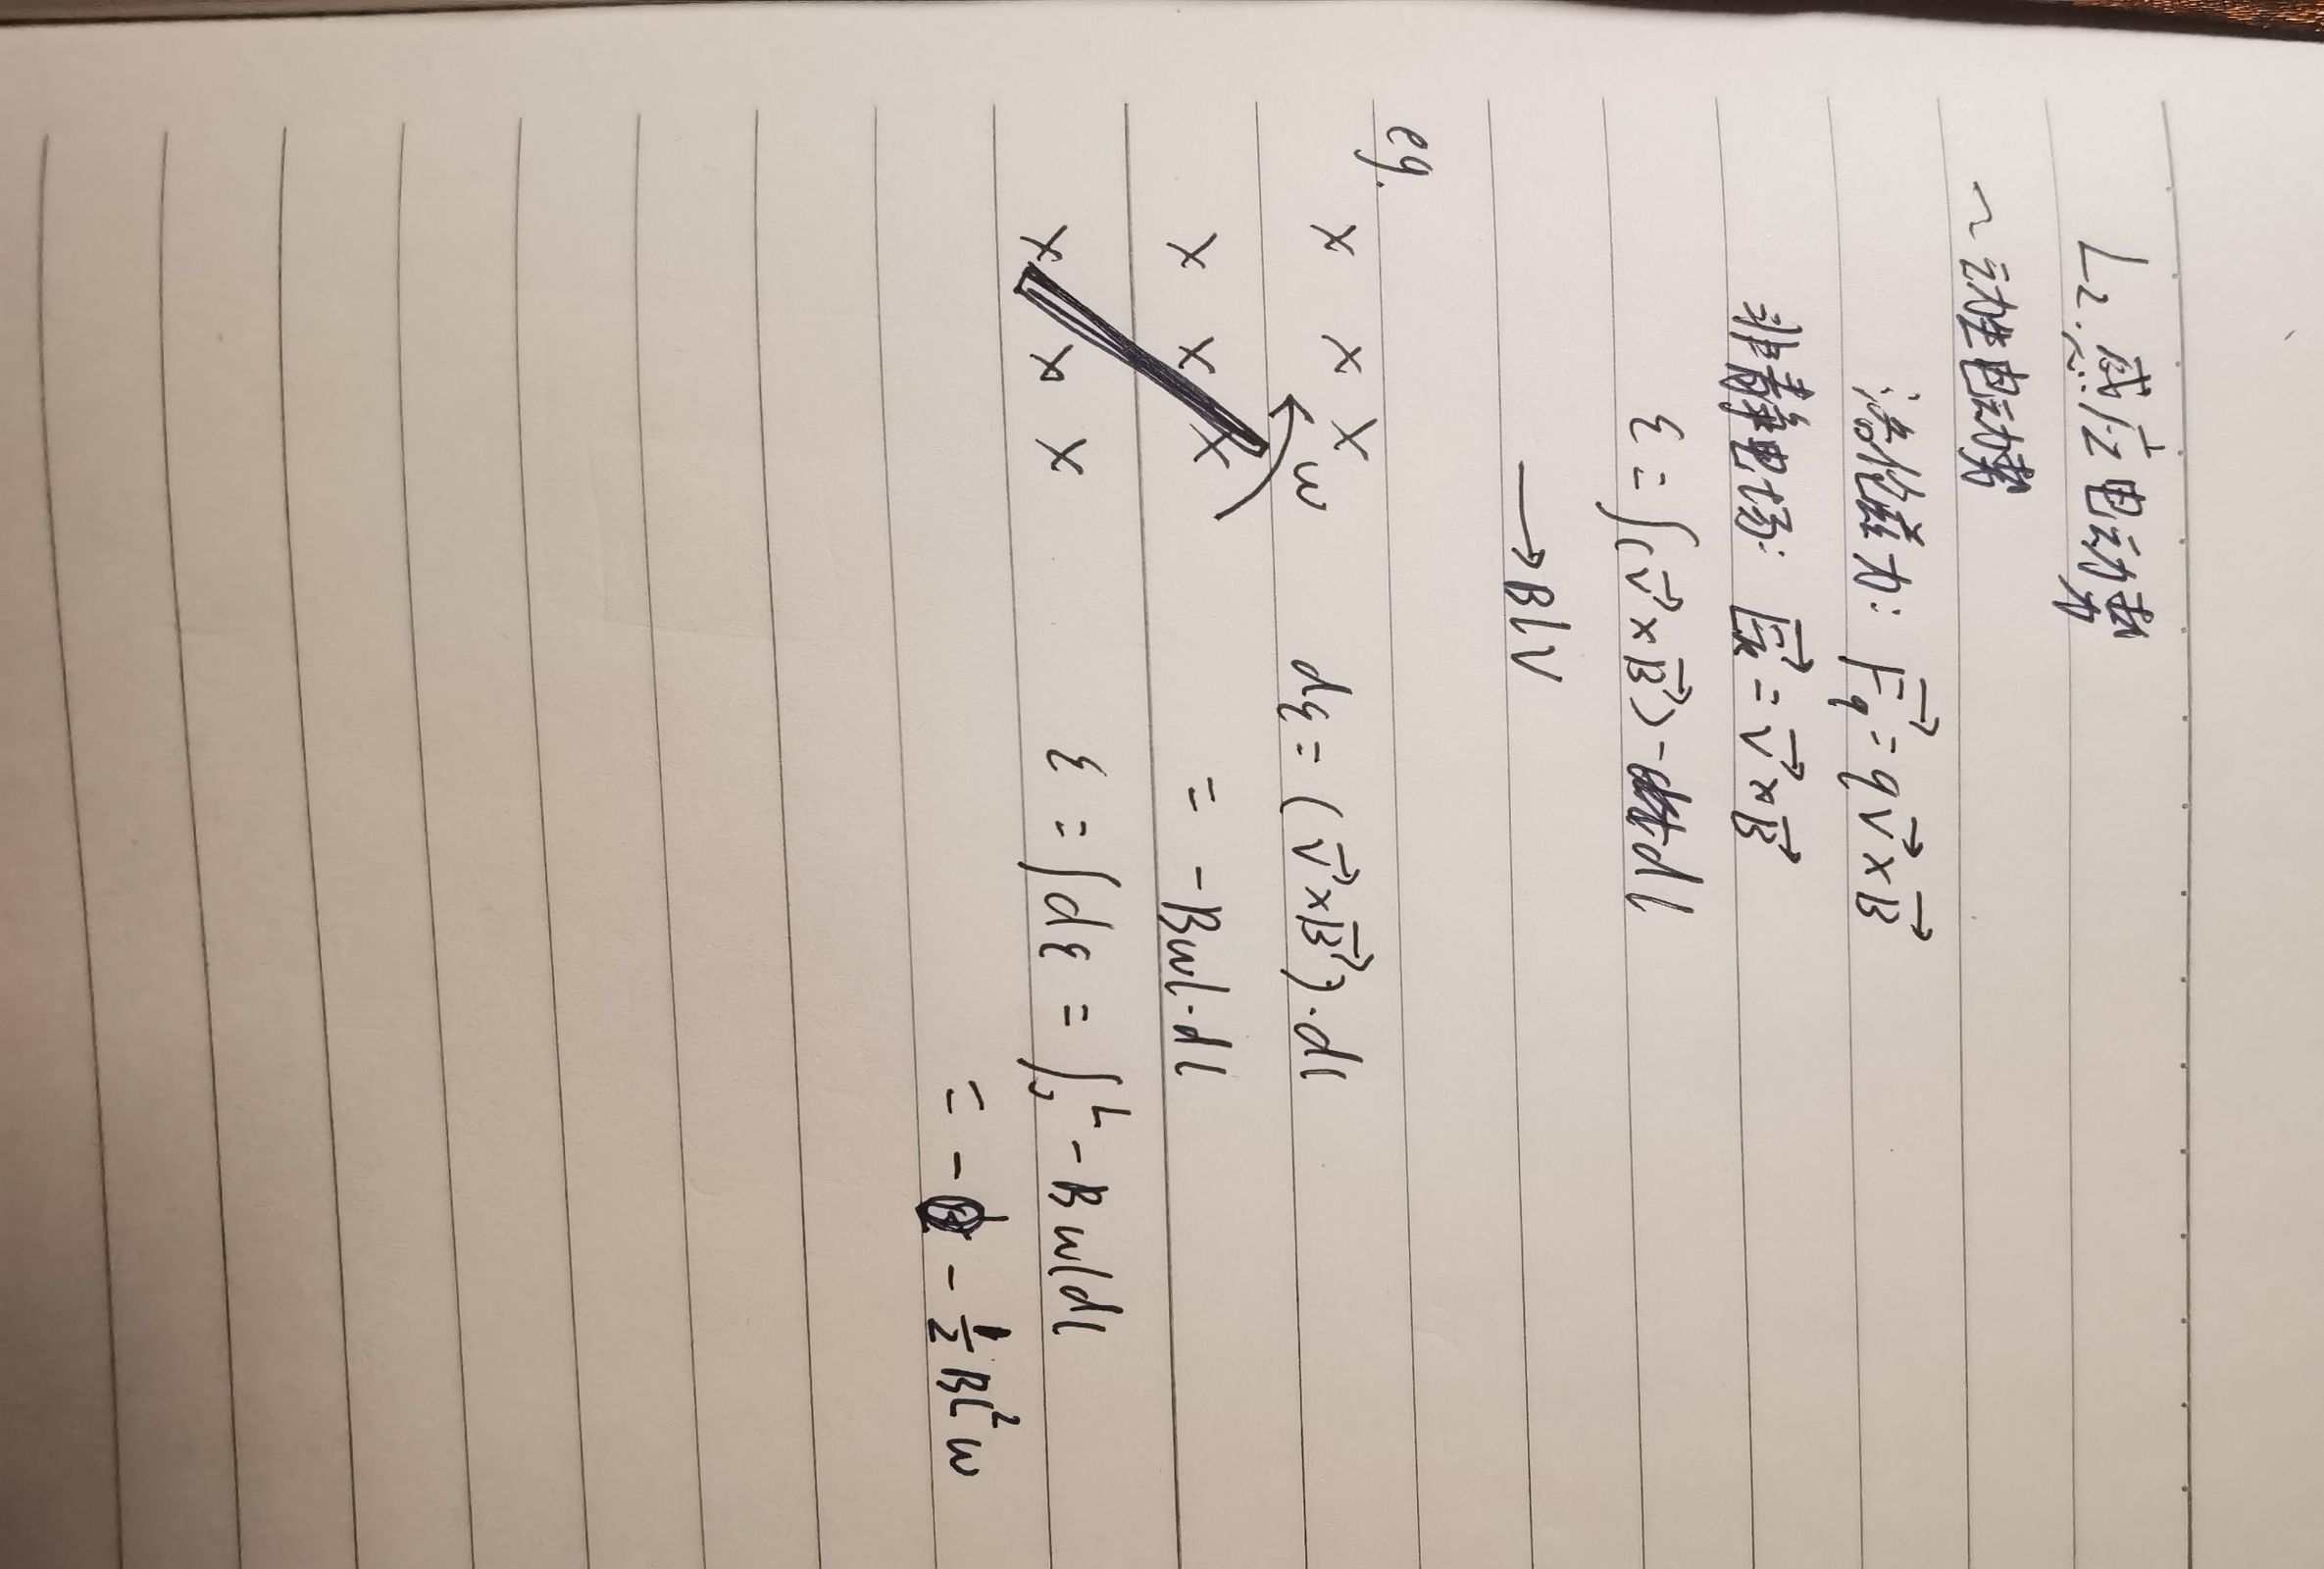 L2. 感应电动势
~ 动生电动势
洛伦兹力: F⃗q = qv⃗×B⃗
非静电场: E⃗k = v⃗×B⃗
ε = ∫(v⃗×B⃗)-dl
→BlV
eg.
x x x
ω
x x x
x x x
dε = (v⃗×B⃗)·dl
= -Bωl·dl
ε = ∫dε = ∫₀ᴸ -Bωldl
= - - 1/2 Bl²ω